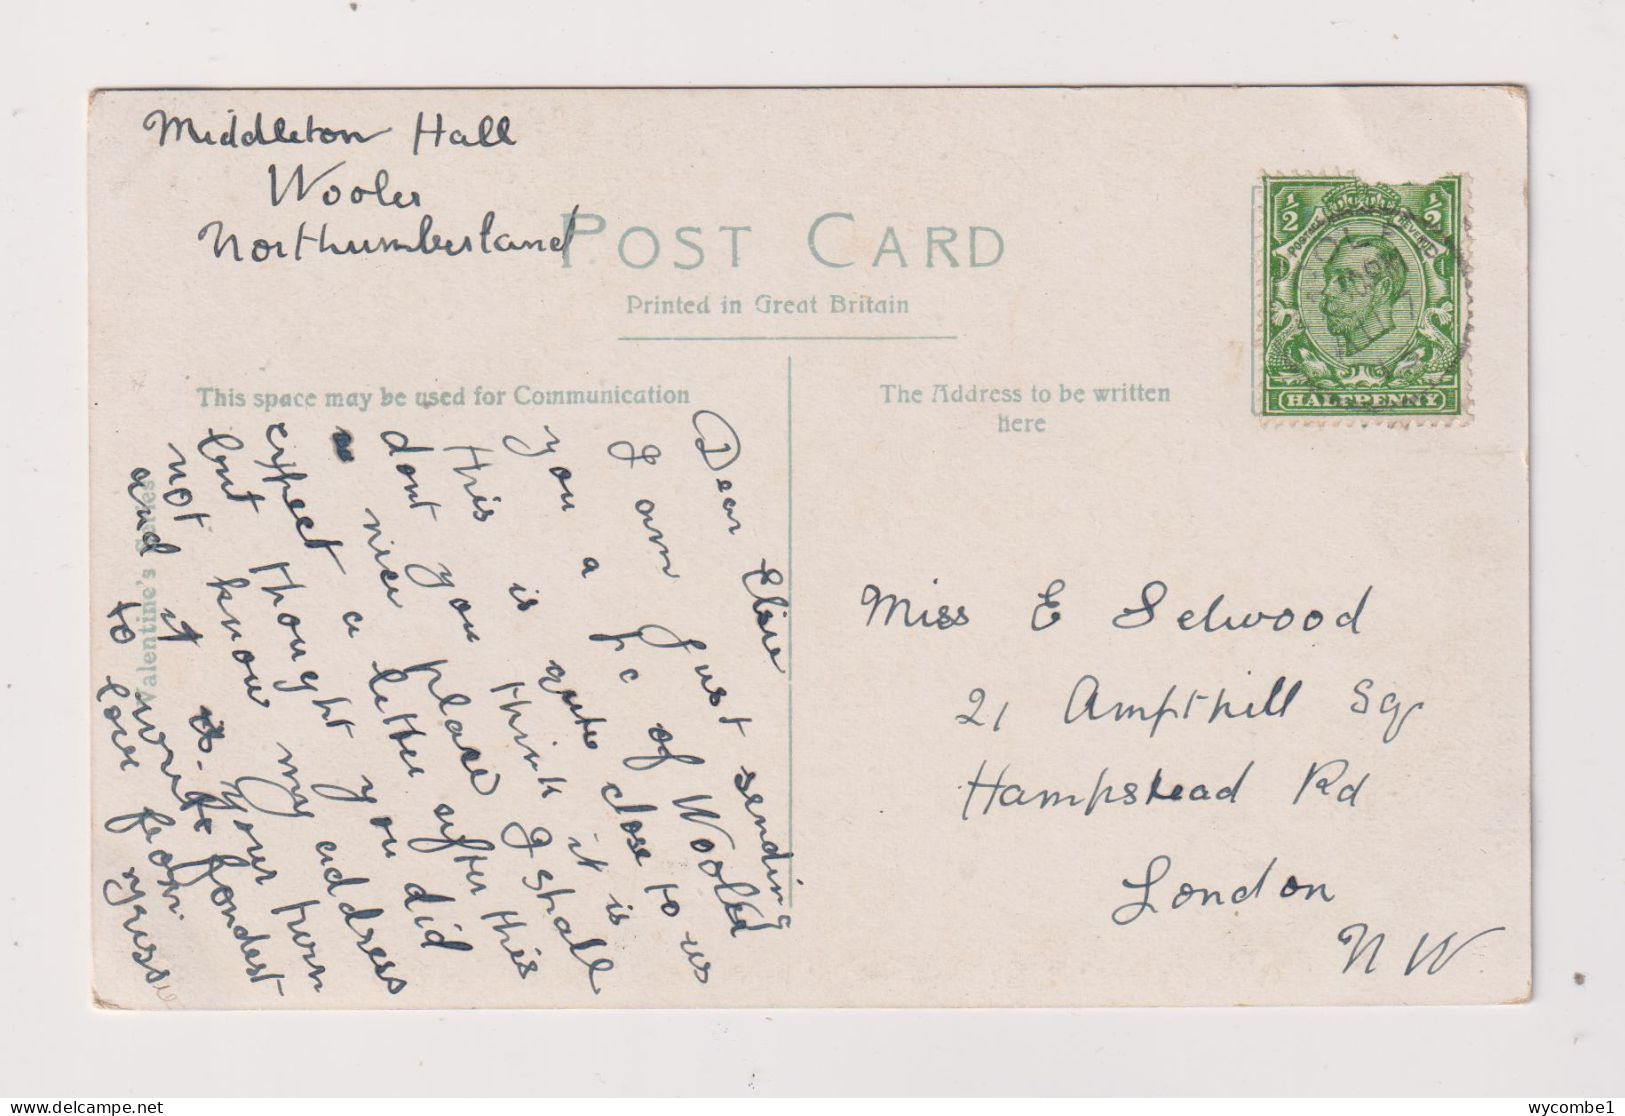 Middleton Hall
Wooler
Northumberland
POST CARD
Printed in Great Britain
This space may be used for Communication
The Address to be written
here
Valentine's Series
½ ½
POSTAGE REVENUE
HALFPENNY
Dear Elsie
I am just sending
you a Pc of Wooler
this is quite close to us
dont you think it is
a nice place I shall
expect a letter after this
but thought you did
not know my address
and it is your turn
to write fondest
love from
Miss E Selwood
21 Ampthill Sq
Hampstead Rd
London
N W
wycombe1